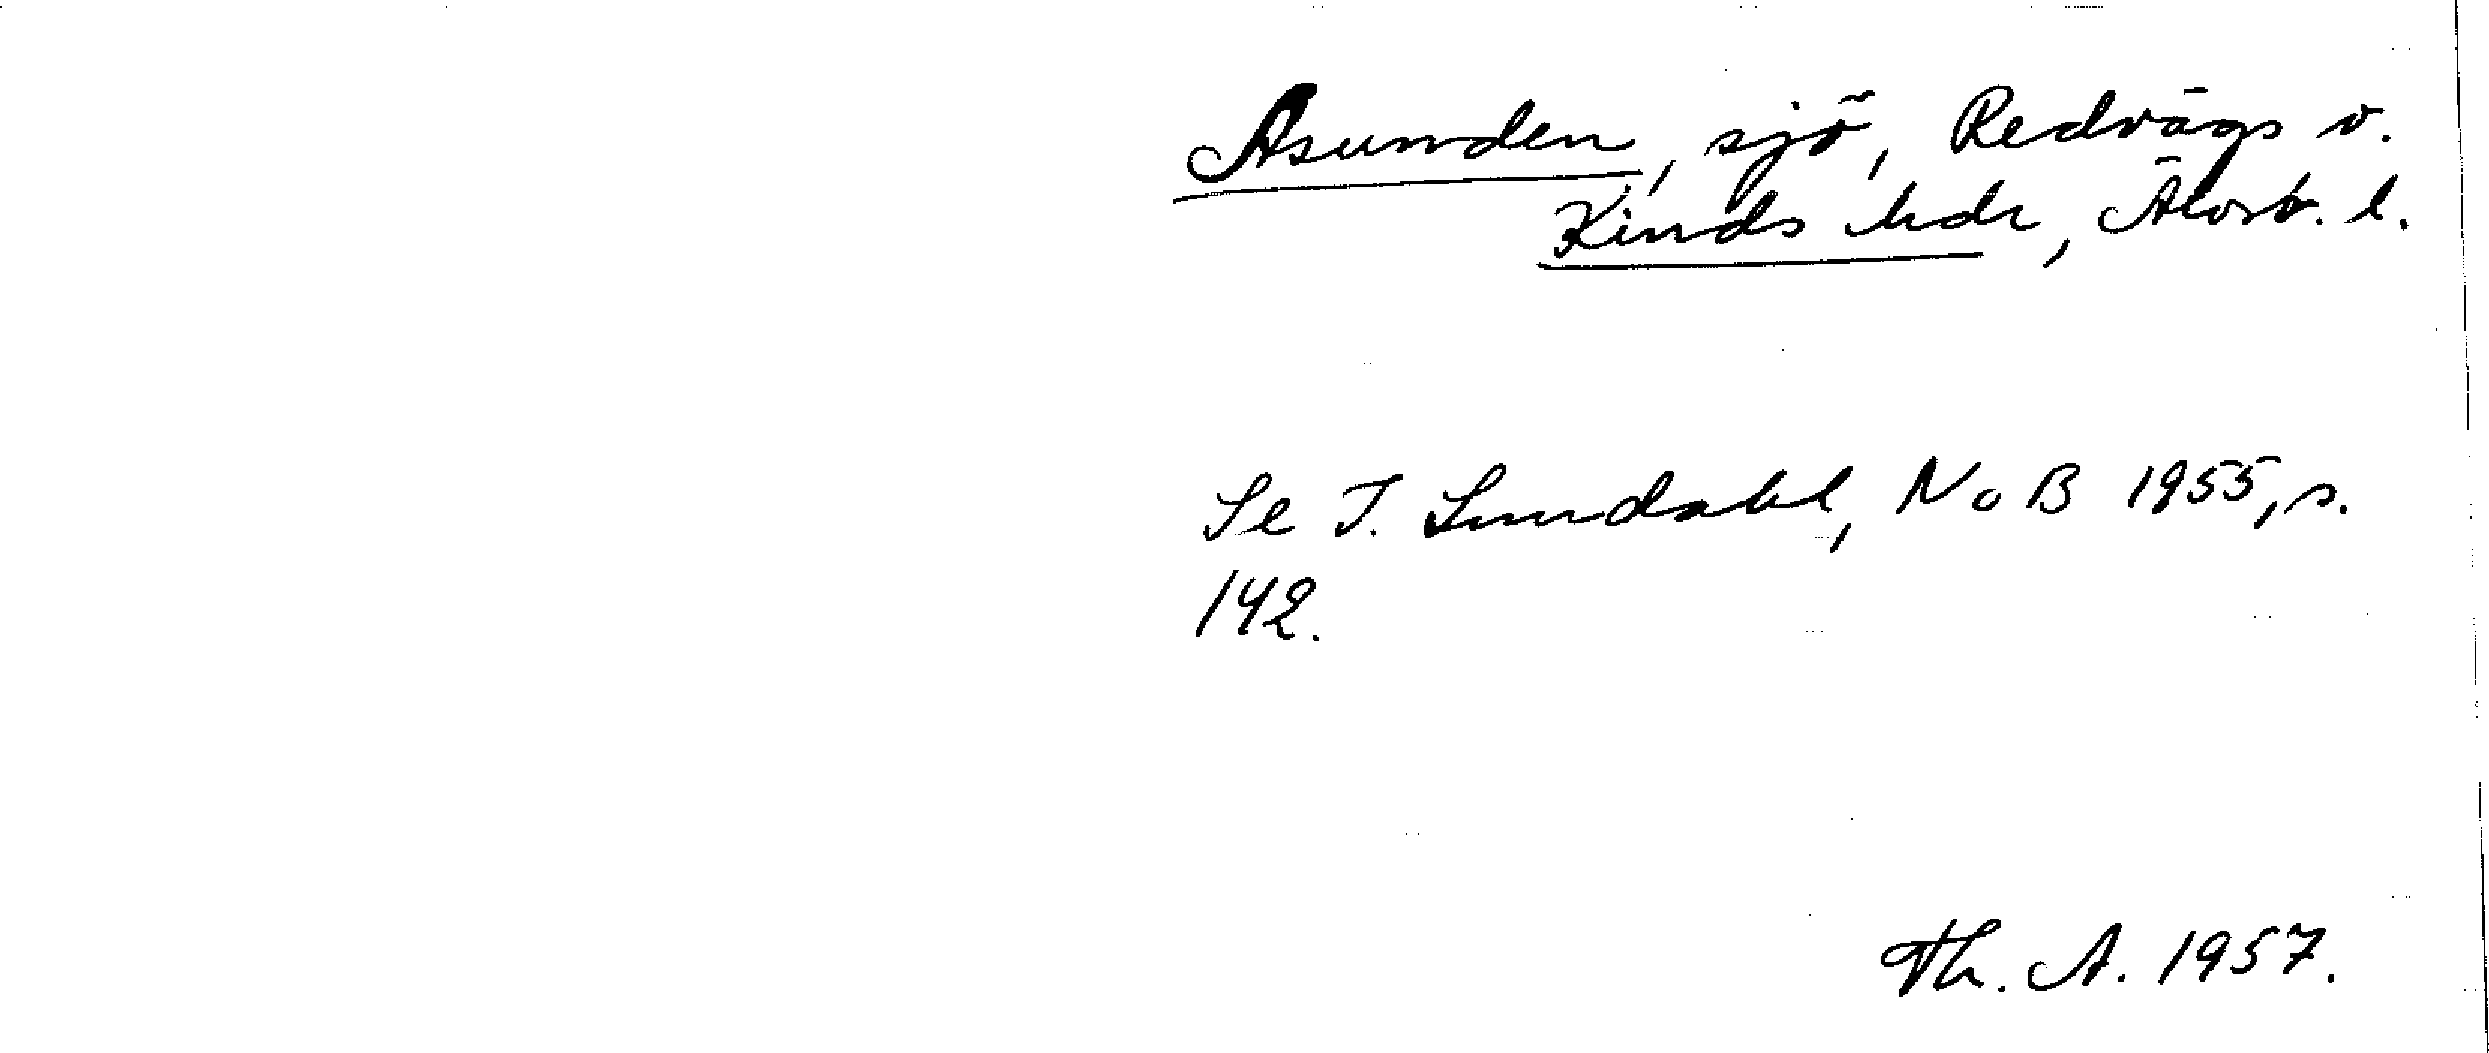 Åsunden, sjö, Redvägs o.
Kinds hdr, Älvsb. l.
Se I. Lundahl, NoB 1955, s.
142.
Th. A. 1957.